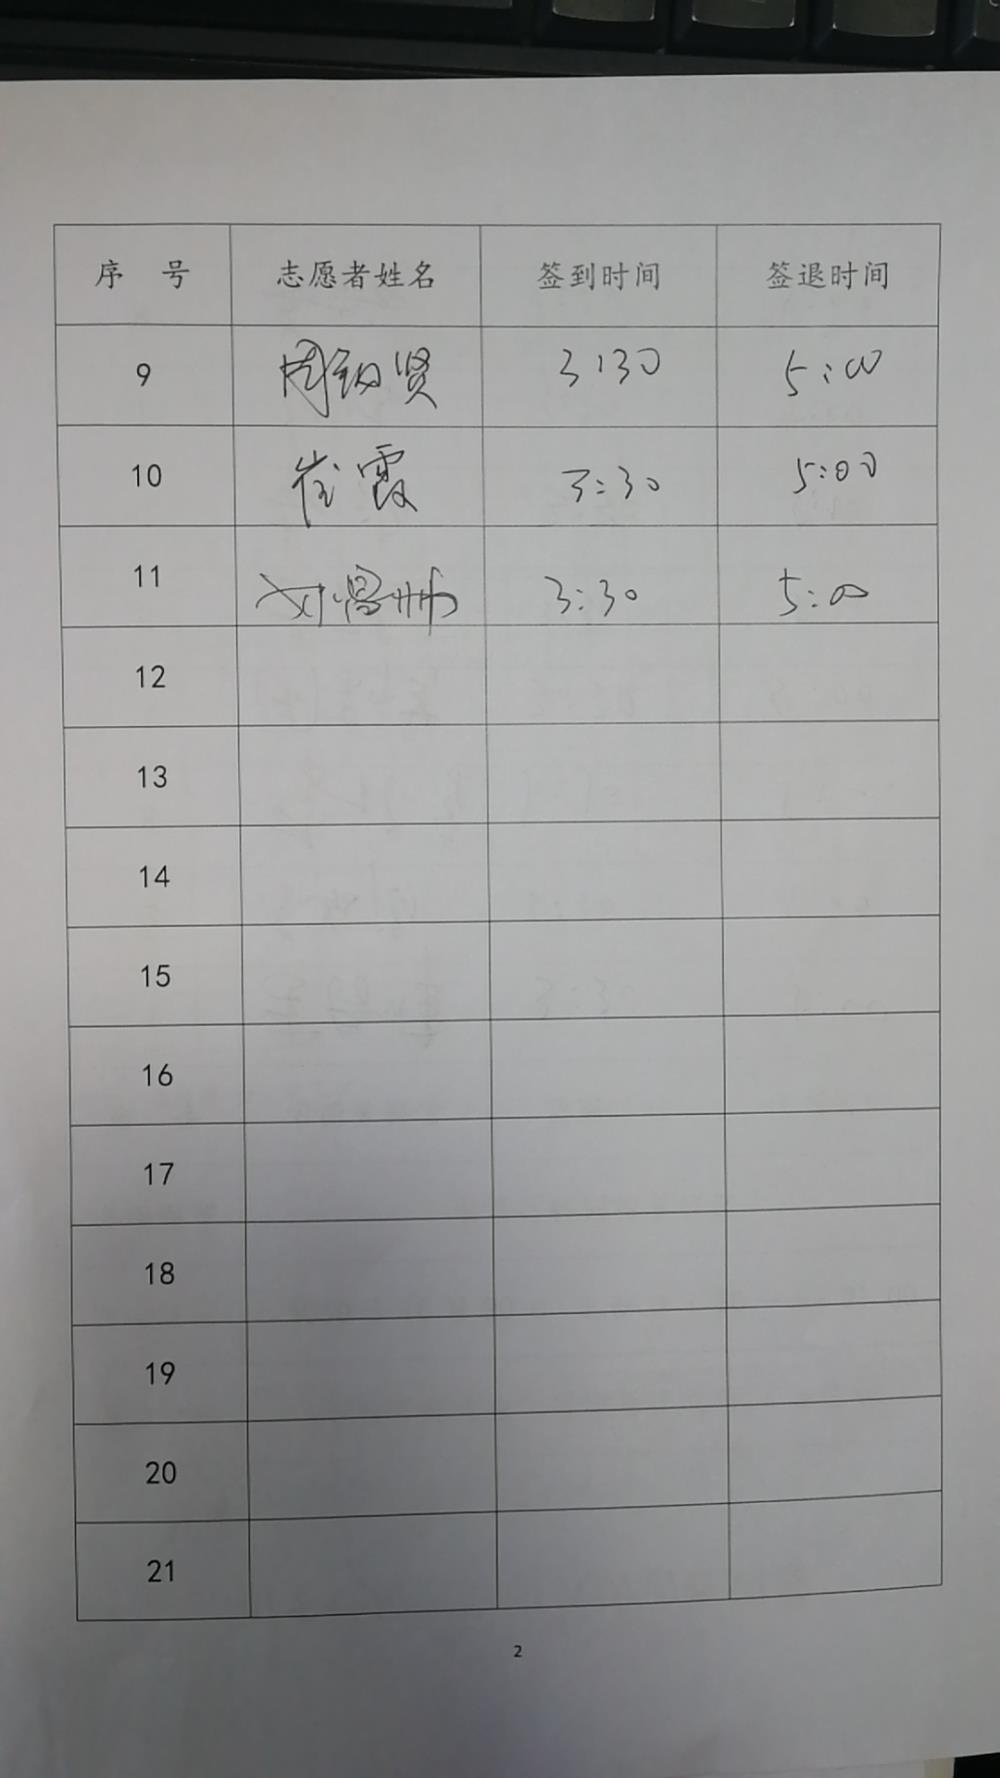 序 号 志愿者姓名 签到时间 签退时间
9 周 贤 3:30 5:00
10 崔霞 3:30 5:00
11 刘 3:30 5:00
12
13
14
15
16
17
18
19
20
21
2